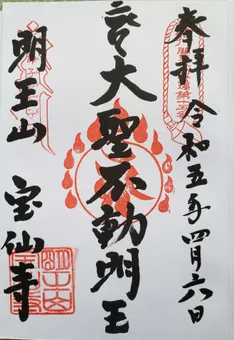 奉拝 令和五年四月六日
大聖不動明王
明王山 宝仙寺